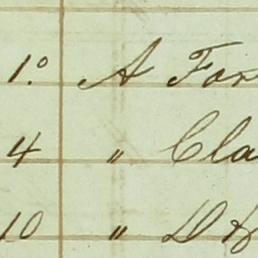 1º A For
4 " Cla
10 " D H